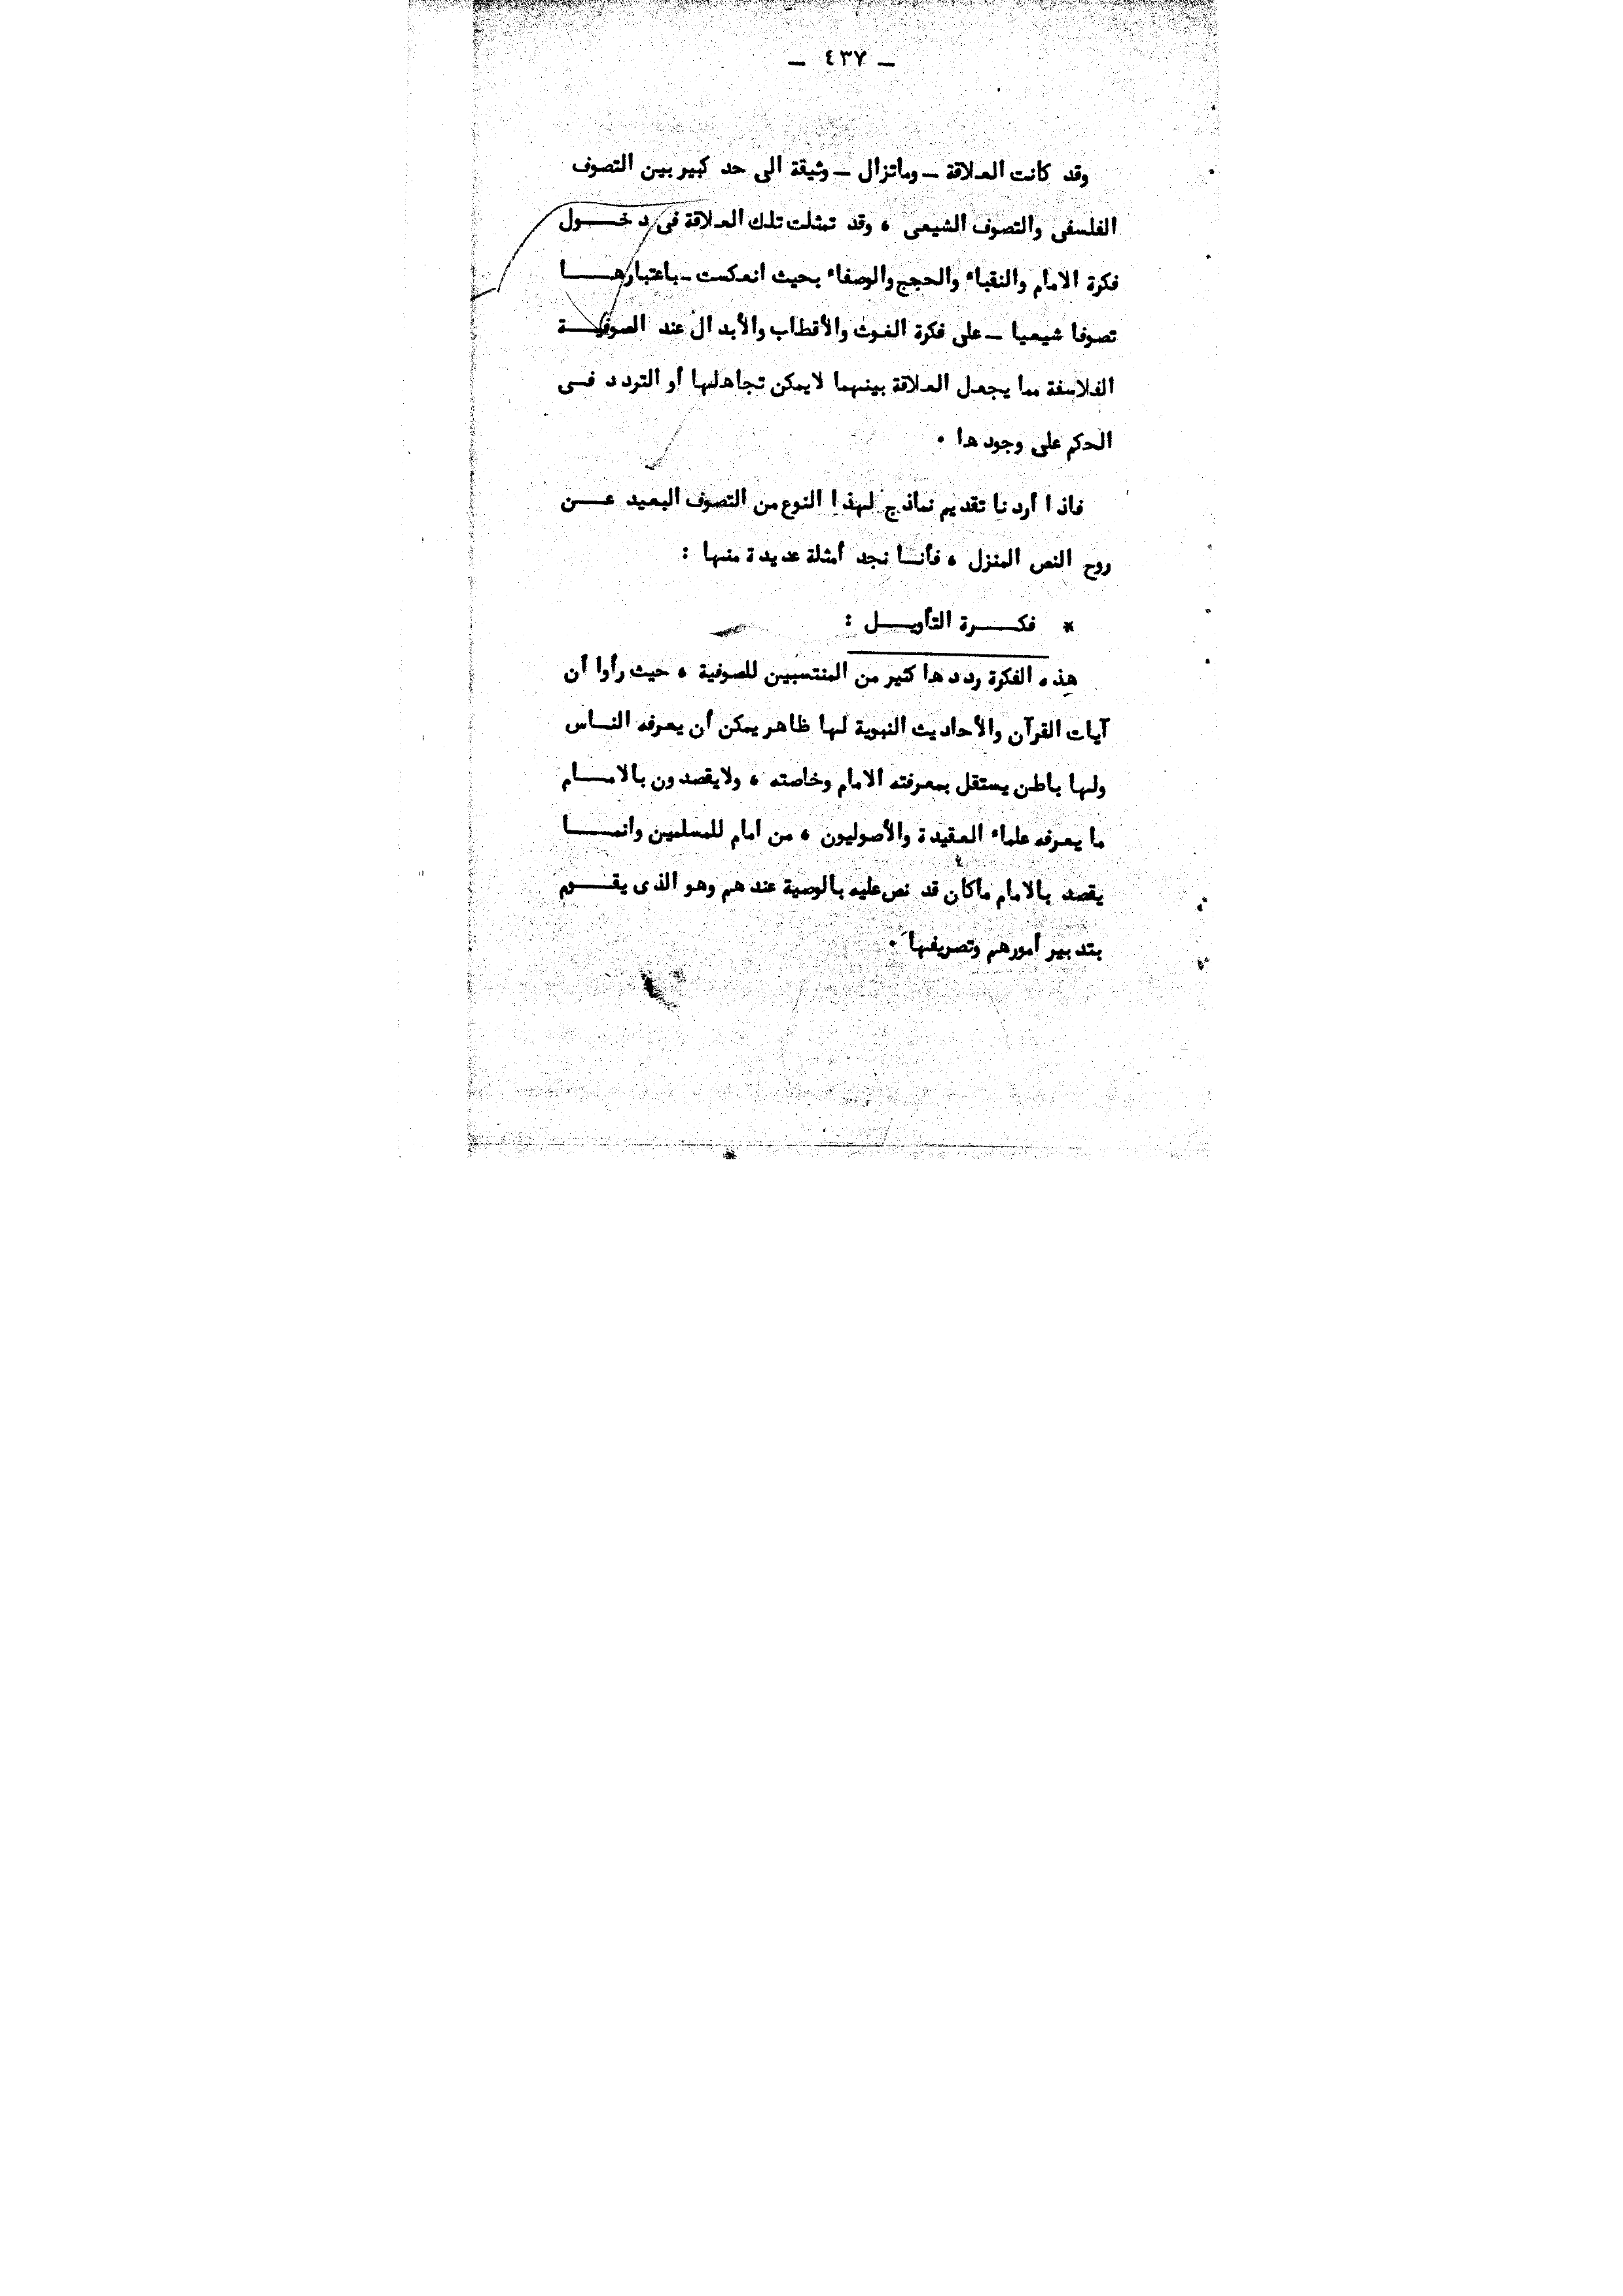 — ٤٣٧ —
وقد كانت العلاقة — وماتزال — وثيقة الى حد كبير بين التصوف
الفلسفى والتصوف الشيعى ، وقد تمثلت تلك العلاقة فى دخـــول
فكرة الامام والنقباء والحجج والوصفاء بحيث انعكست — باعتبارهـــا
تصوفا شيعيا — على فكرة الغوث والأقطاب والأبدال عند الصوفيـــة
الفلاسفة مما يجعل العلاقة بينهما لايمكن تجاهلها أو التردد فــى
الحكم على وجودها .
فاذا أردنا تقديم نماذج لهذا النوع من التصوف البعيد عـــن
روح النص المنزل ، فأنــا نجد أمثلة عديدة منها :
* فكـــرة التأويـــل :
هذه الفكرة رددها كثير من المنتسبين للصوفية ، حيث رأوا أن
آيات القرآن والأحاديث النبوية لها ظاهر يمكن أن يعرفه النــاس
ولها باطن يستقل بمعرفته الامام وخاصته ، ولايقصدون بالامـــام
ما يعرفه علماء العقيدة والأصوليون ، من امام للمسلمين وانمـــا
يقصد بالامام ماكان قد نص عليه بالوصية عندهم وهو الذى يقـــوم
بتدبير أمورهم وتصريفها .